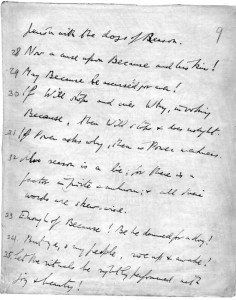 9
perish with the dogs of Reason.
28 Now a curse upon Because and his kin!
29 May Because be accursed for ever!
30 If Will stops and cries Why, invoking
Because, then Will stops & does nought.
31 If Power asks why, then is Power weakness.
32 Also reason is a lie; for there is a
factor infinite & unknown; & all their
words are skew-wise.
33 Enough of Because! Be he damned for a dog!
34 But ye, o my people, rise up & awake!
35 Let the rituals be rightly performed with
joy & beauty!